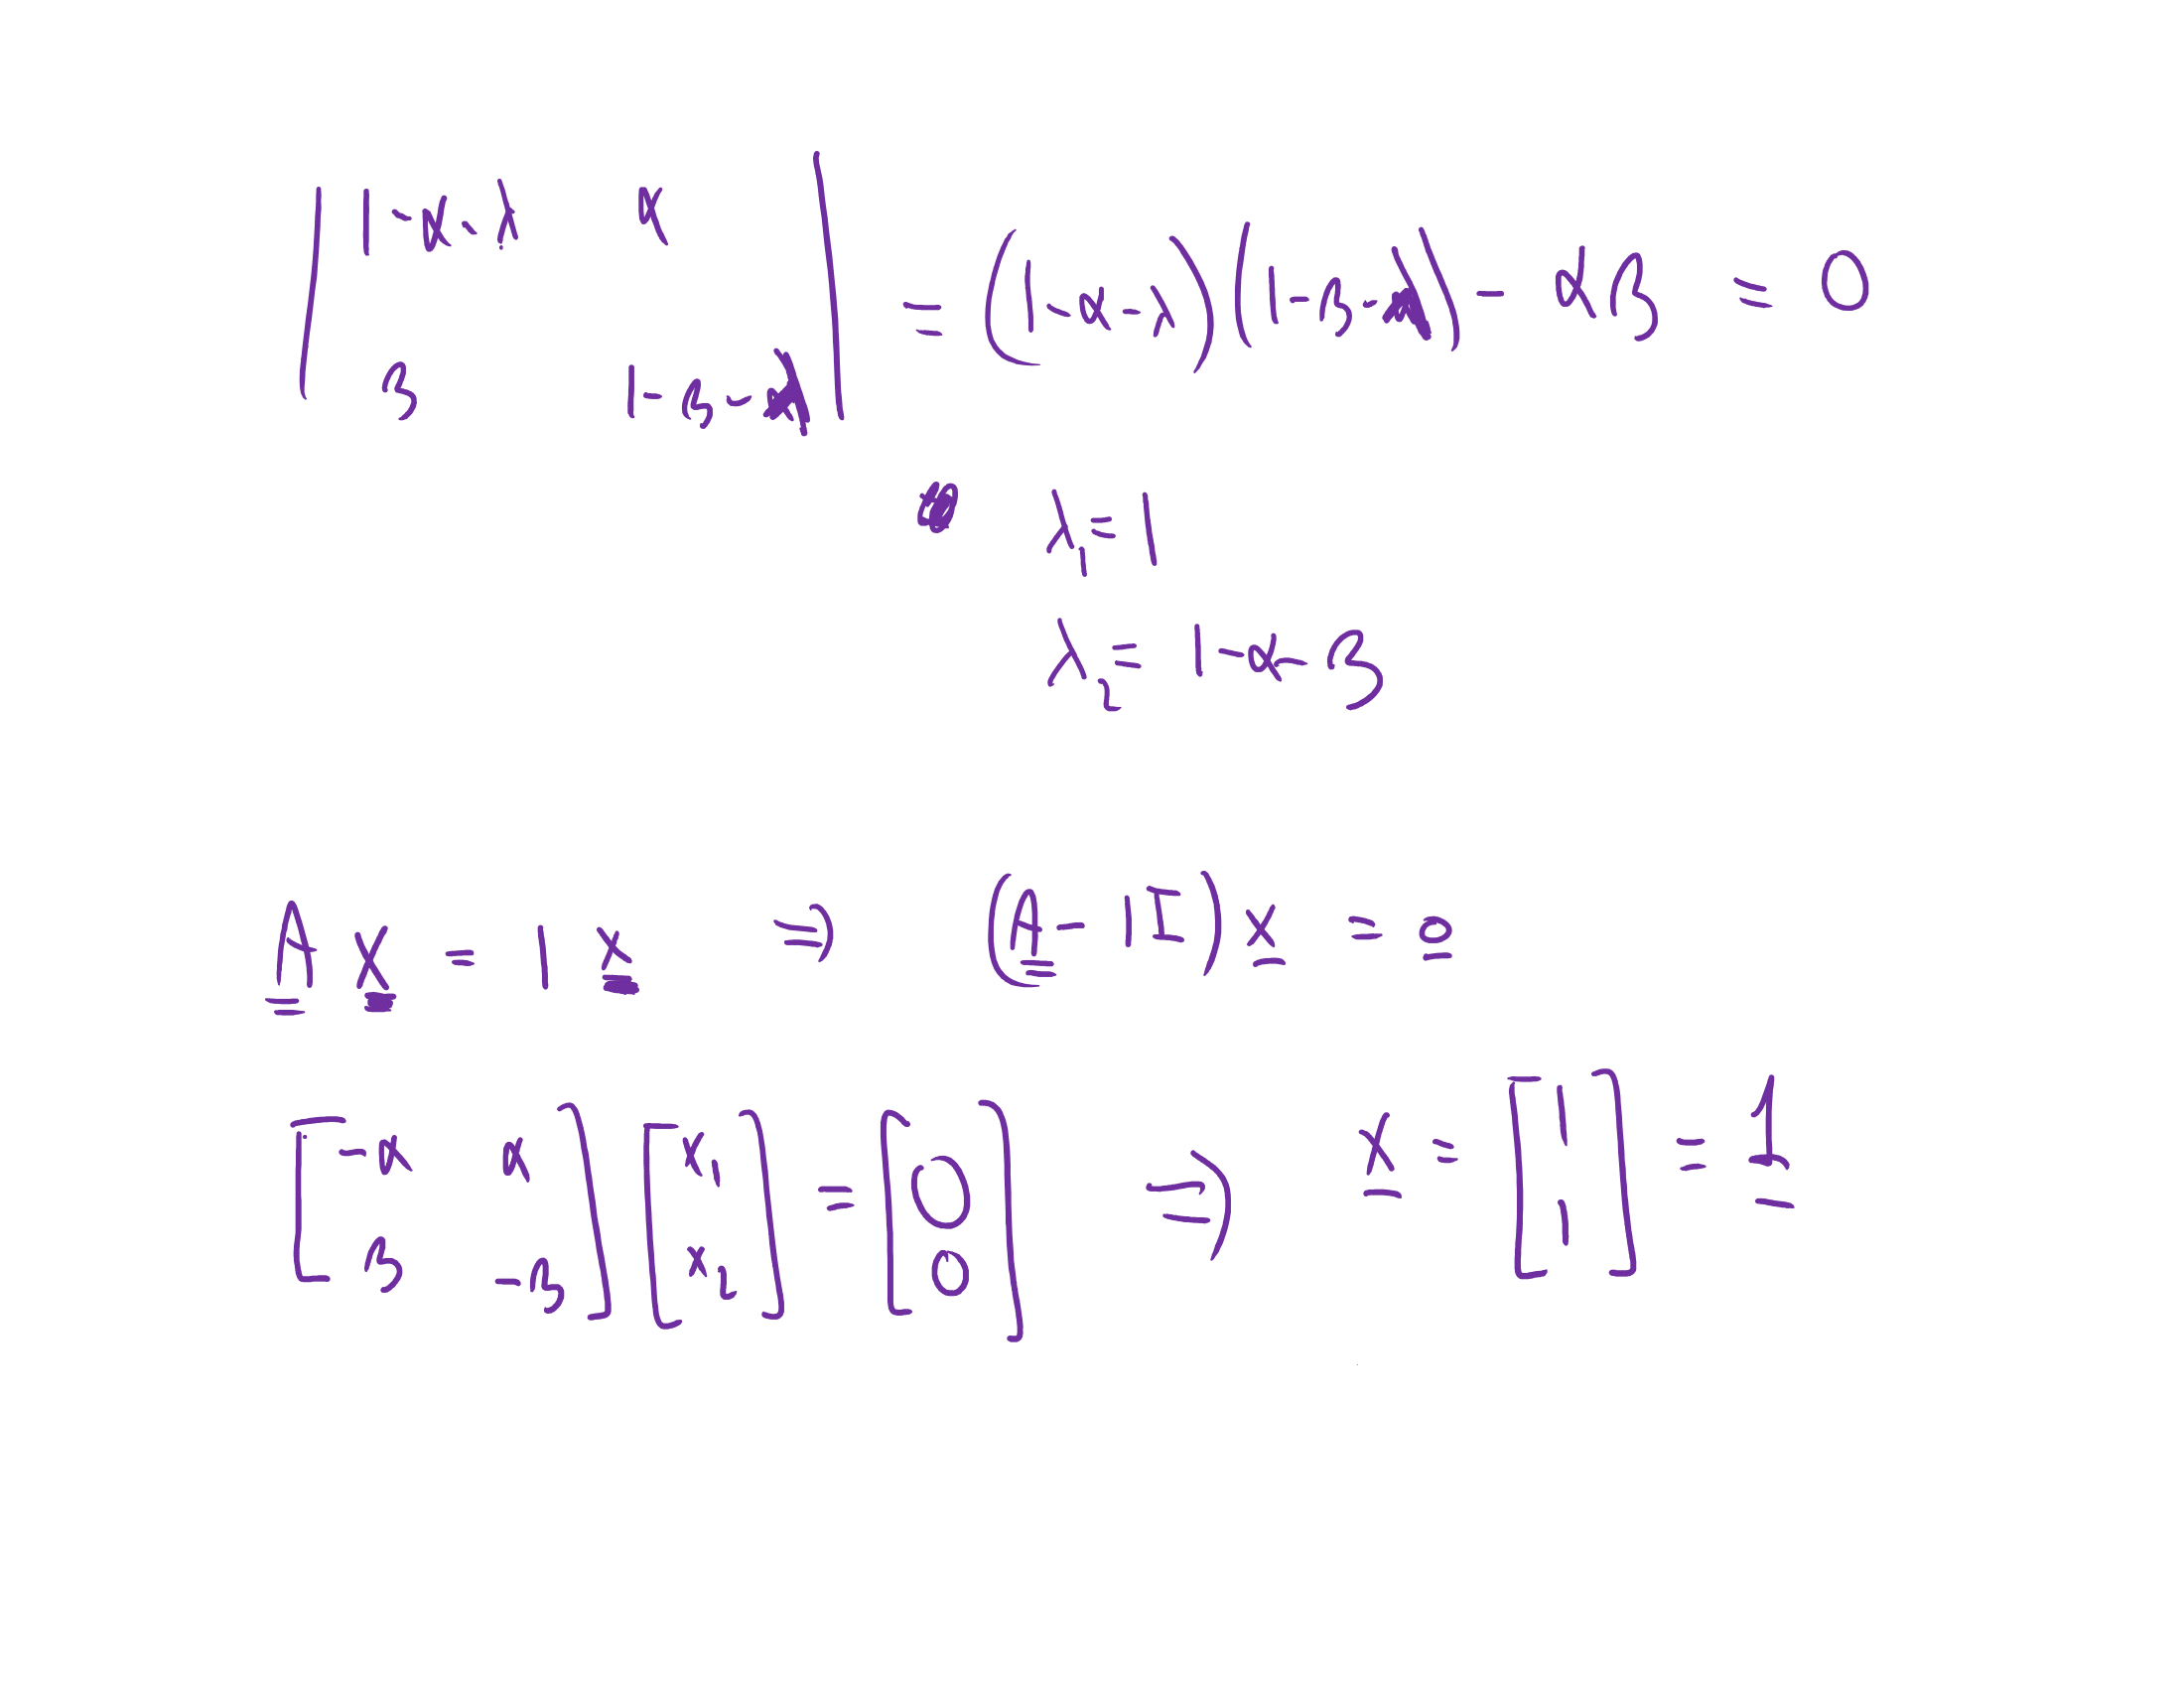 | 1-α-λ α |
| β 1-β-λ | = (1-α-λ)(1-β-λ) - αβ = 0
λ₁ = 1
λ₂ = 1-α-β
A x = 1 x ⇒ (A - 1I) x = 0
[ -α α ] [ x₁ ] = [ 0 ] ⇒ x = [ 1 ] = 1
[ β -β ] [ x₂ ] [ 0 ] [ 1 ]